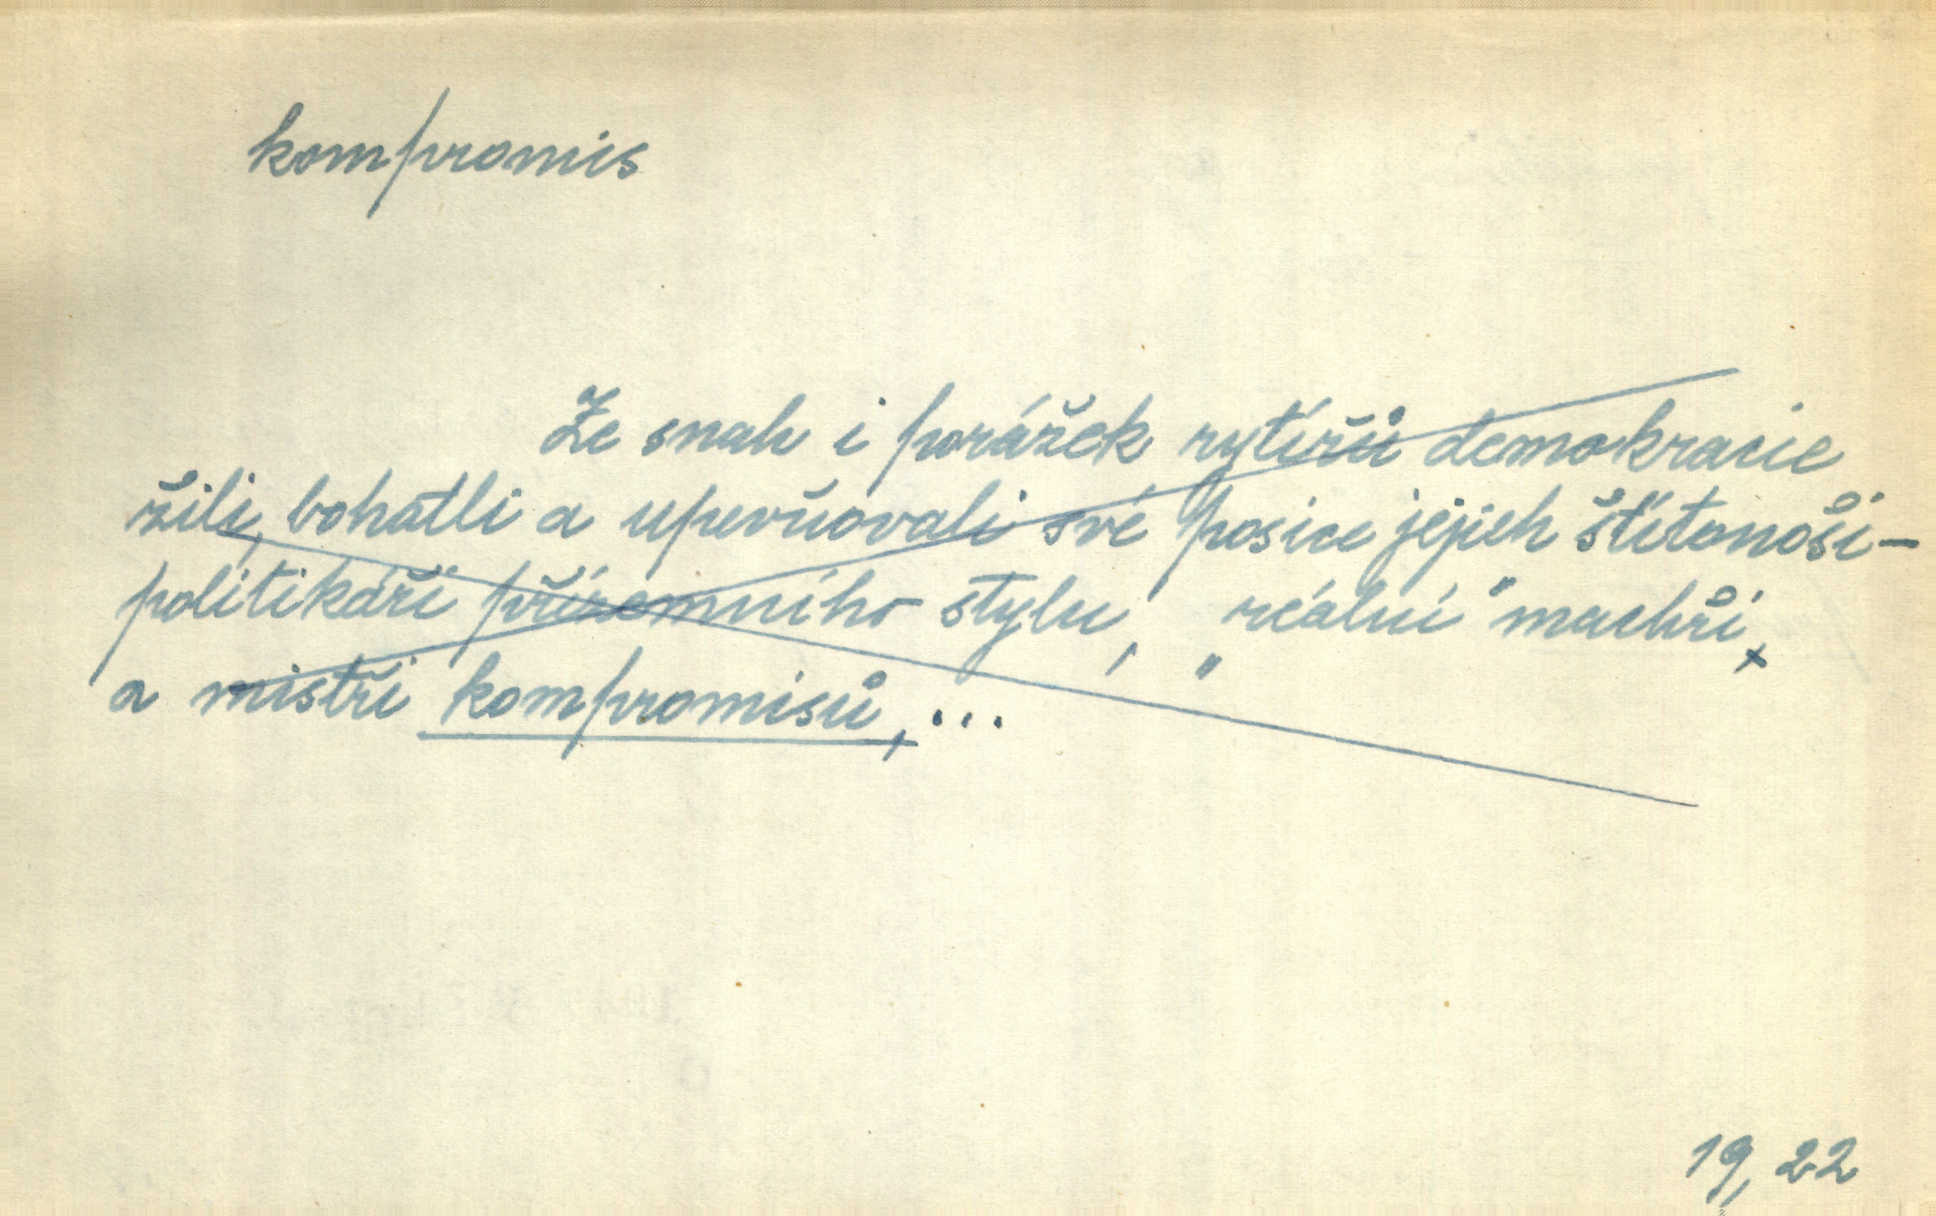 kompromis
Ze snah i porážek rytířů demokracie
žili, bohatli a upevňovali své posice jejich štítonoši-
politikáři přízemního stylu, „reální“ machři,
a mistři kompromisů, ...
19, 22